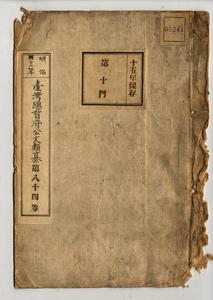 十五年保存
第十門
明治
四十二年
臺灣總督府公文類纂
第八十四卷